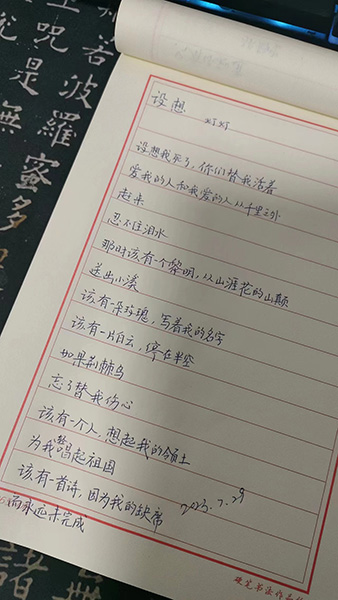 设想
灯灯
设想我死了，你们替我活着
爱我的人和我爱的人从千里之外
赶来
忍不住泪水
那时该有一个黎明，从山涯花的山巅
送出小溪
该有一朵玫瑰，写着我的名字
该有一片白云，停在半空
如果荆棘鸟
忘了替我伤心
该有一个人，想起我的领土
为我唱起祖国
该有一首诗，因为我的缺席
而永远未完成
2023.7.29
硬笔书法作品
若波羅蜜多
呪是無
諸